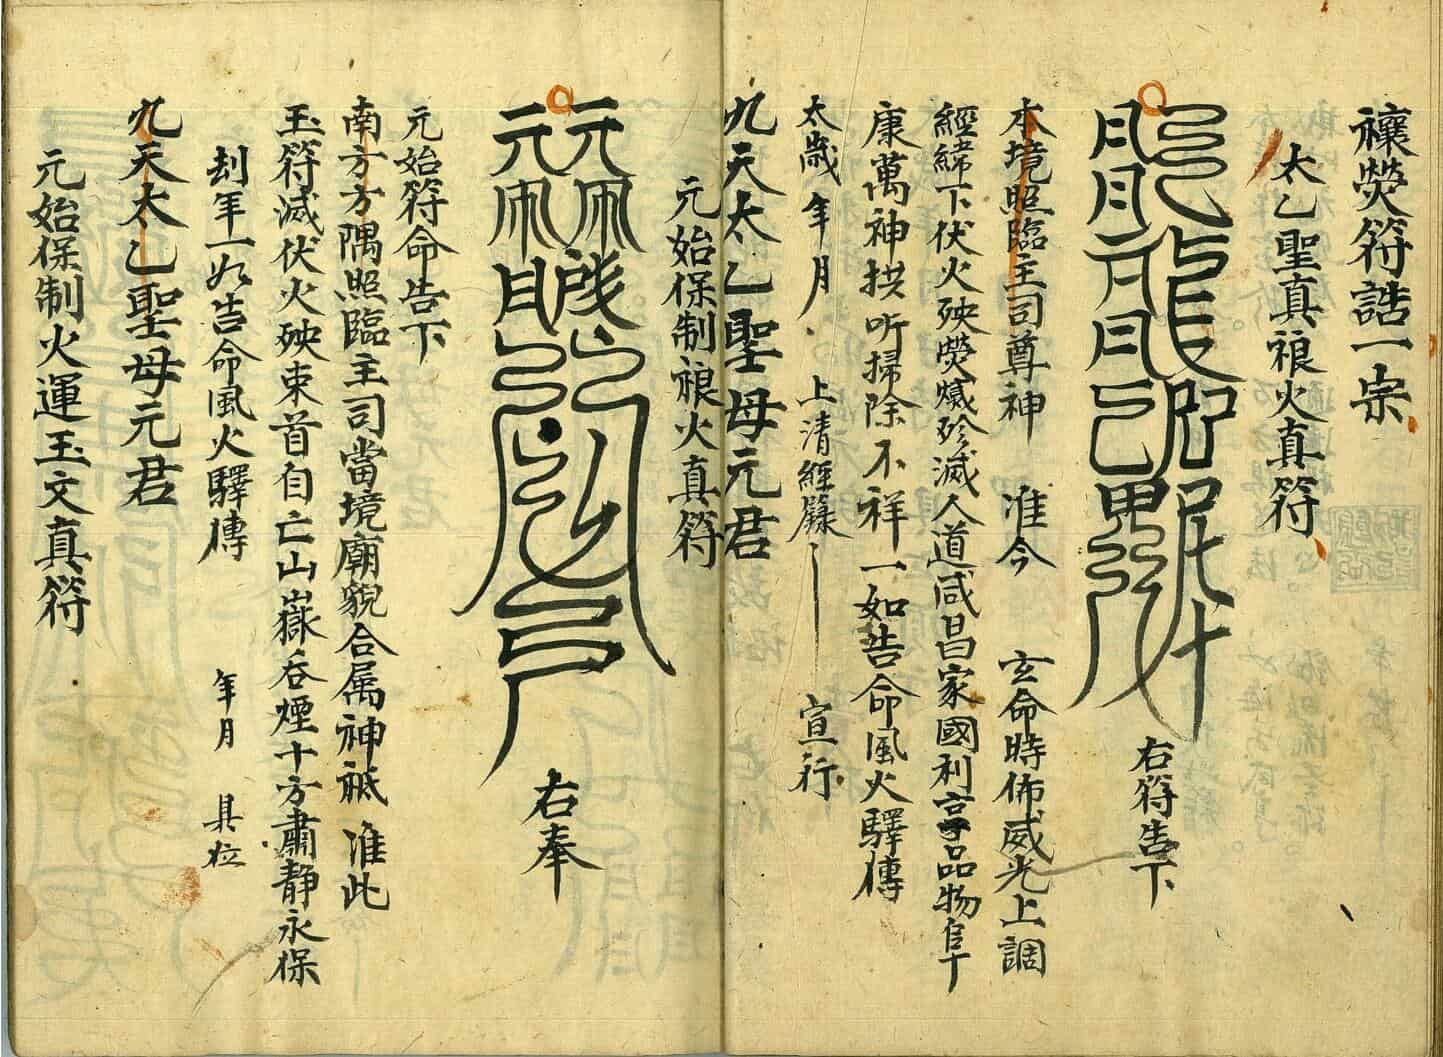 禳熒符誥一宗
太乙聖真禳火真符
右符告下
本境照臨主司尊神　准今　玄命時佈威光上調
經緯下伏火殃熒爞殄滅人道咸昌家國利亨品物阜
康萬神拱听掃除不祥一如告命風火驛傳
太歲　年　月　上清經籙　宣行
九天太乙聖母元君
元始保制禳火真符
右奉
元始符命告下
南方方隅照臨主司當境廟貌合属神祇　准此
玉符滅伏火殃束首自亡山嶽吞煙十方肅靜永保
刦年一如告命風火驛傳　年月　具位
九天太乙聖母元君
元始保制火運玉文真符